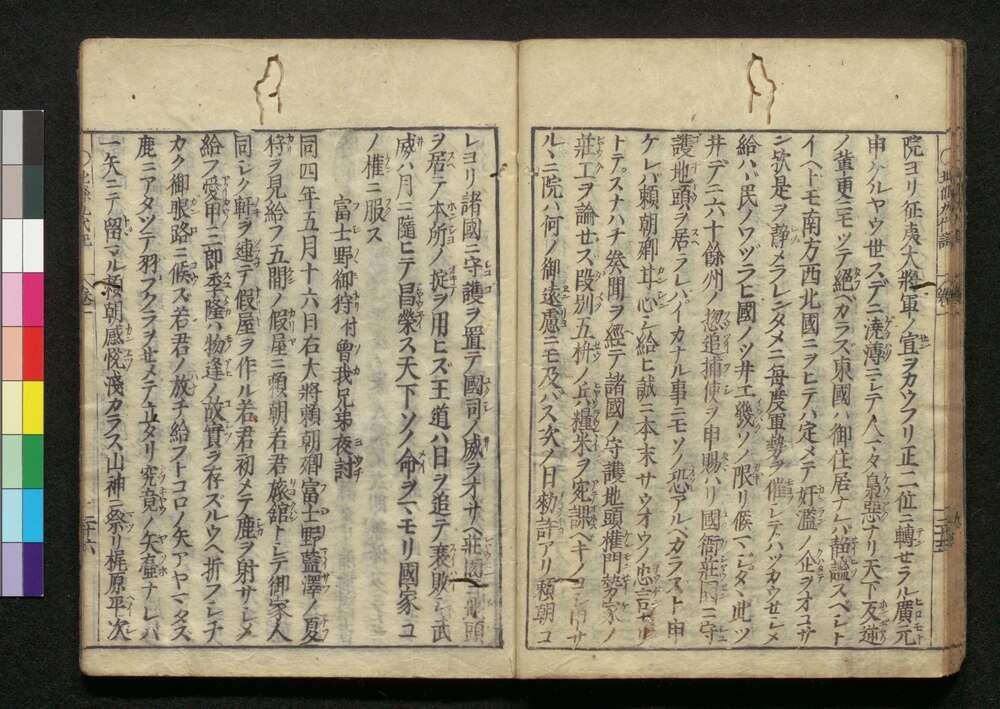 院ヨリ征夷大將軍ノ宣ヲカウフリ正二位ニ轉セラル廣元
申ケルヤウ世スデニ澆漓ニシテ人マタ梟惡ナリ天下反逆
ノ輩更ニモツテ絕ベカラズ東國ハ御住居ナレバ靜謐スベシト
イヘトモ南方西北國ニヲヒテハ定メテ奸濫ノ企ヲオコサ
ン欤是ヲ靜メラレンタメニ毎度軍勢ヲ催シテハツカワせシメ
給ハヾ民ノワヅラヒ國ノツ井エ幾ソノ限リ候マシタヾ此ツ
井デニ六十餘州ノ惣追捕使ヲ申賜ハリ國衙莊園ニ守
護地頭ヲ居ラレバイカナル事ニモソノ恐アルベカラスト申
ケレバ賴朝卿甘心シ給ヒ誠ニ本末サウオウノ忠言ナリ
トテスナハチ奏聞ヲ經テ諸國ノ守護地頭權門勢家ノ
莊工ヲ論せズ段別五枡ノ兵糧米ヲ宛課ベキノヨシ申サ
ルヽニ院ハ何ノ御遠慮ニモ及バス次ノ日勅許アリ賴朝コ
レヨリ諸國ニ守護ヲ置テ國司ノ威ヲオサヘ莊園ニ地頭
ヲ居テ本所ノ掟ヲ用ヒズ王道ハ日ヲ追テ衰敗シ武
威ハ月ニ隨ヒテ昌榮ス天下ソノ命ヲマモリ國家コ
ノ權ニ服ス
富士野御狩付曾我兄弟夜討
同四年五月十六日右大將賴朝卿富士野藍澤ノ夏
狩ヲ見給フ五間ノ假屋ニ賴朝若君旅舘トシテ御家人
同シク軒ヲ連テ假屋ヲ作ル若君初メテ鹿ヲ射サシメ
給フ愛甲三郎季隆ハ物逢ノ故實ヲ存スルウヘ折フシチ
カク御眼路ニ候ズ若君ノ放チ給フトコロノ矢アヤマタス
鹿ニアタツテ羽フクラヲせメテ立タリ究竟ノ矢壺ナレバ
一矢ニテ留マル賴朝感悅淺カラス山神ニ祭リ梶原平次
卷一
二十六